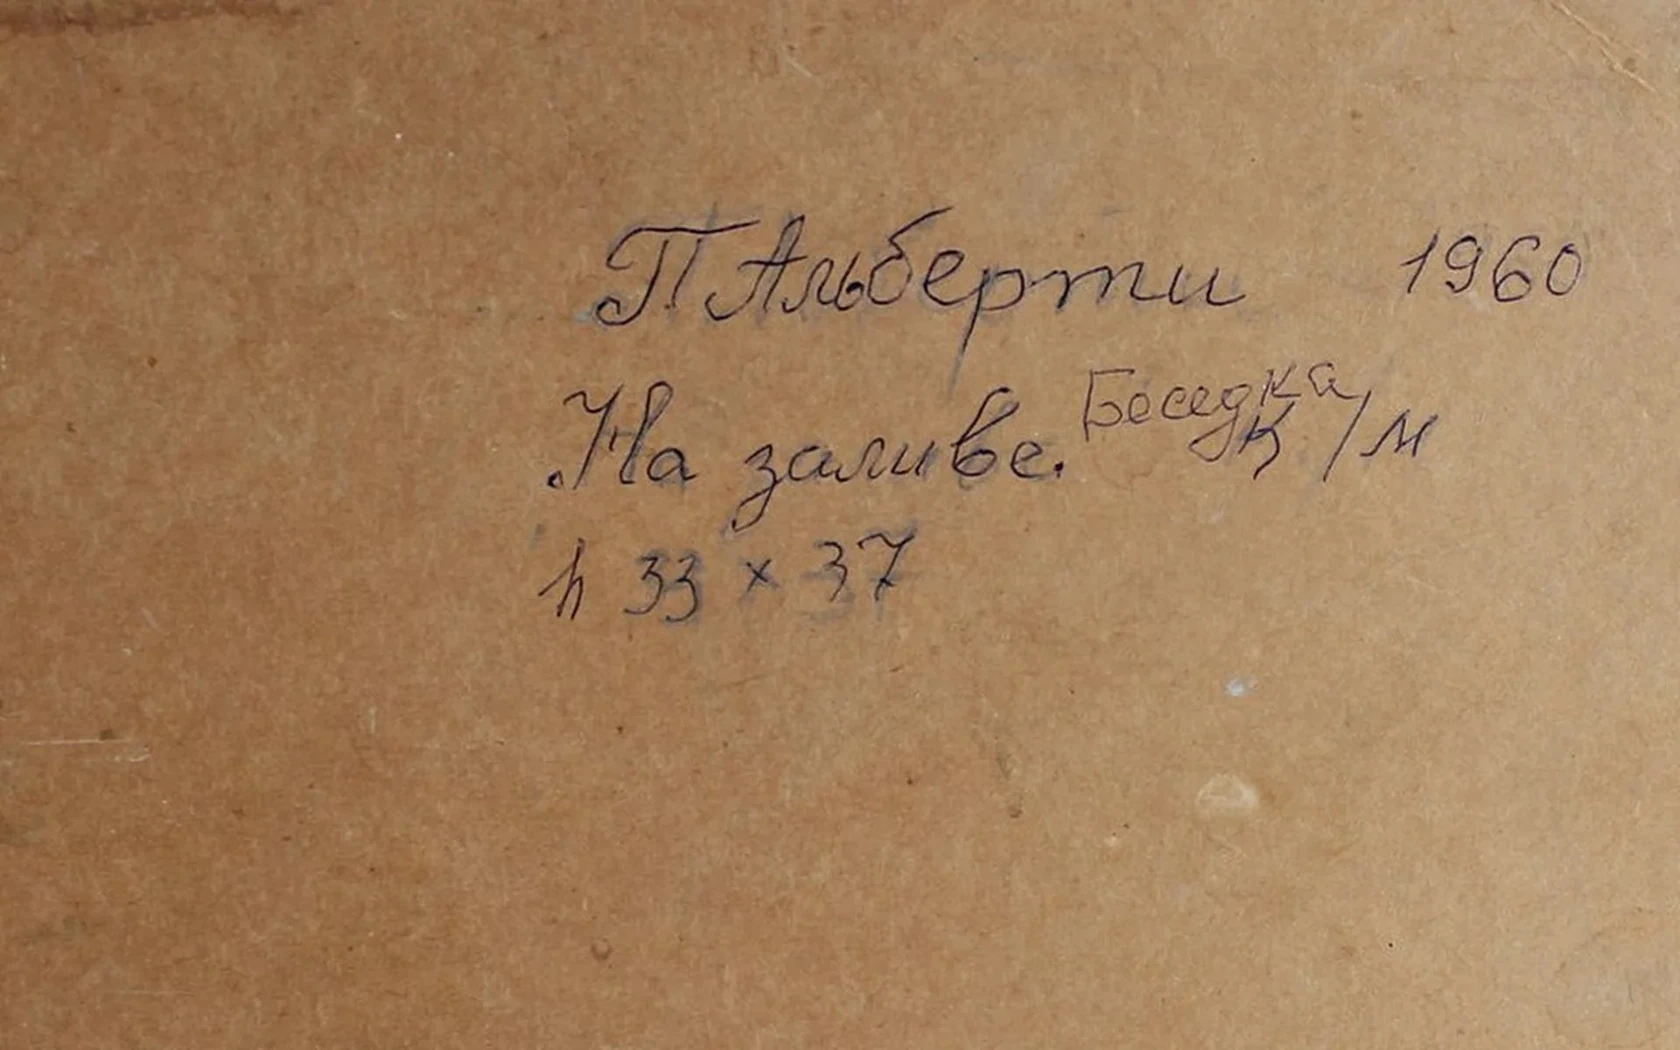 П Альберти 1960
На заливе. Беседка к/м
h 33 × 37